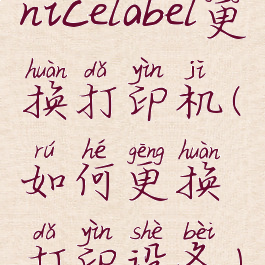 nicelabel更
huàn dǎ yìn jī
换打印机(
rú hé gēng huàn
如何更换
dǎ yìn shè bèi
打印设备)